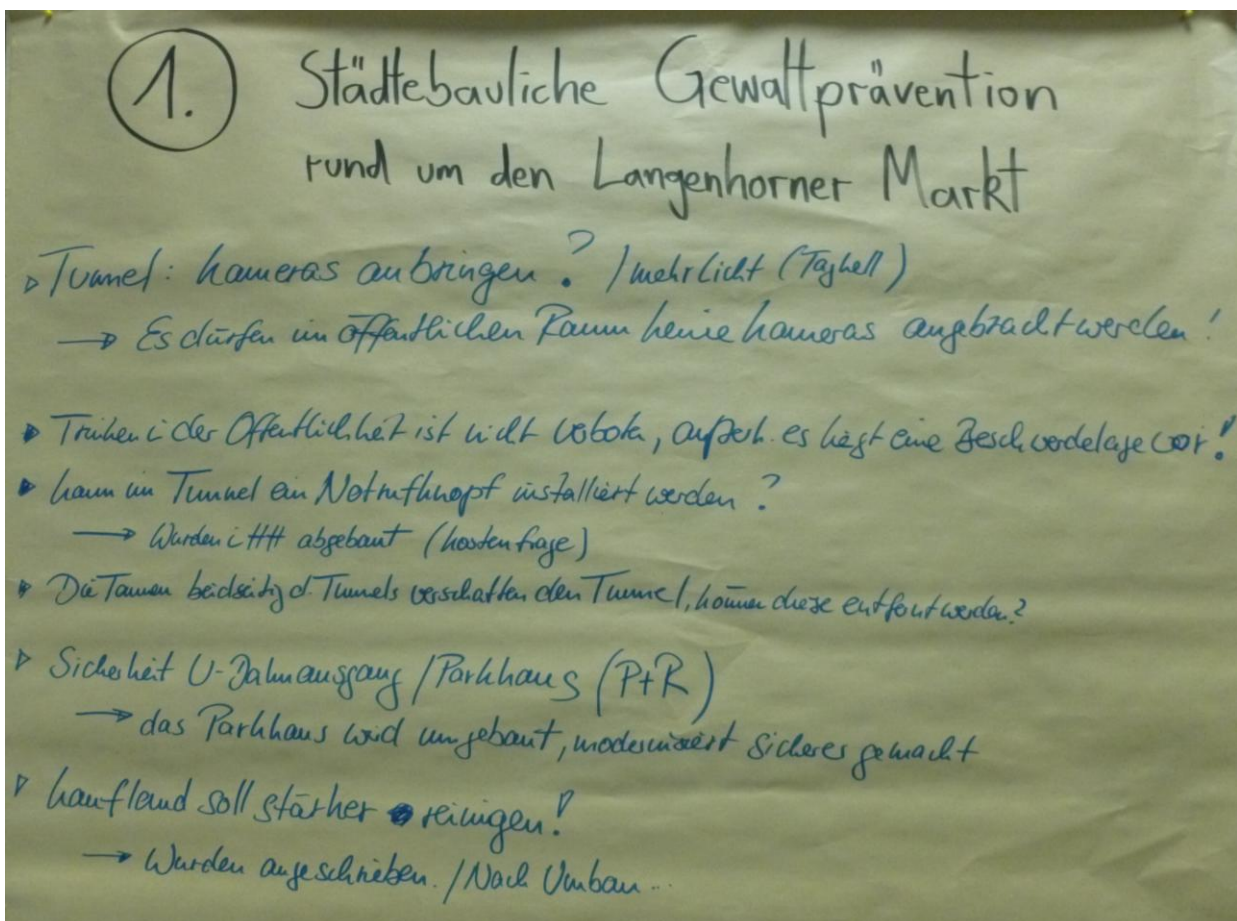 1. Städtebauliche Gewaltprävention
rund um den Langenhorner Markt
▹ Tunnel: Kameras anbringen? / mehr Licht (Taghell)
→ Es dürfen im öffentlichen Raum keine Kameras angebracht werden!
▸ Trinken i. der Öffentlichkeit ist nicht verboten, außerh. es liegt eine Beschwerdelage vor!
▸ Kann im Tunnel ein Notrufknopf installiert werden?
→ Wurden i. HH abgebaut (Kostenfrage)
▸ Die Tannen beidseitig d. Tunnels verschatten den Tunnel, können diese entfernt werden?
▹ Sicherheit U-Bahnausgang / Parkhaus (P+R)
→ das Parkhaus wird umgebaut, modernisiert sicherer gemacht
▹ Kaufland soll stärker reinigen!
→ Wurden angeschrieben. / Nach Umbau...